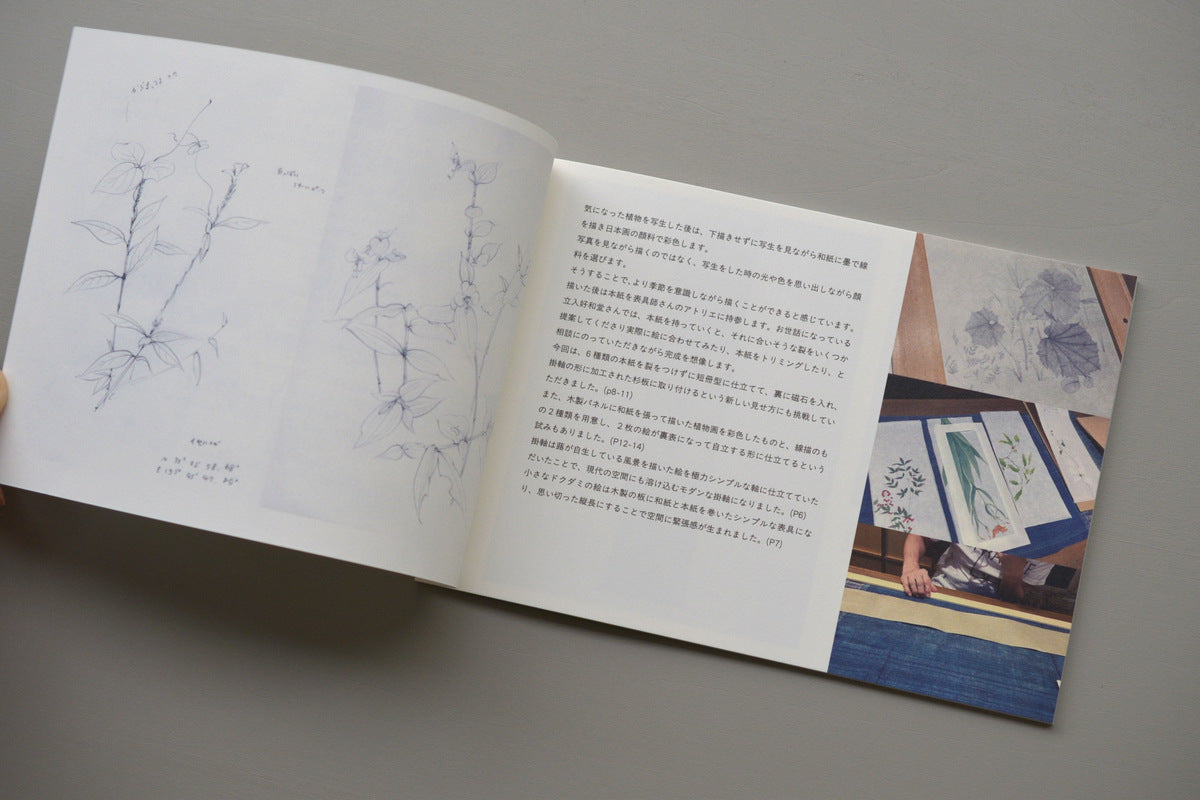 気になった植物を写生した後は、下描きせずに写生を見ながら和紙に墨で線
を描き日本画の顔料で彩色します。
写真を見ながら描くのではなく、写生をした時の光や色を思い出しながら顔
料を選びます。
そうすることで、より季節を意識しながら描くことができると感じています。
描いた後は本紙を表具師さんのアトリエに持参します。お世話になっている
立入好和堂さんでは、本紙を持っていくと、それに合いそうな裂をいくつか
提案してくださり実際に絵に合わせてみたり、本紙をトリミングしたり、と
相談にのっていただきながら完成を想像します。
今回は、6種類の本紙を裂をつけずに短冊型に仕立てて、裏に磁石を入れ、
掛軸の形に加工された杉板に取り付けるという新しい見せ方にも挑戦してい
ただきました。(p8-11)
また、木製パネルに和紙を張って描いた植物画を彩色したものと、線描のも
の2種類を用意し、2枚の絵が裏表になって自立する形に仕立てるという
試みもありました。(P12-14)
掛軸は蕗が自生している風景を描いた絵を極力シンプルな軸に仕立てていた
だいたことで、現代の空間にも溶け込むモダンな掛軸になりました。(P6)
小さなドクダミの絵は木製の板に和紙と本紙を巻いたシンプルな表具にな
り、思い切った縦長にすることで空間に緊張感が生まれました。(P7)